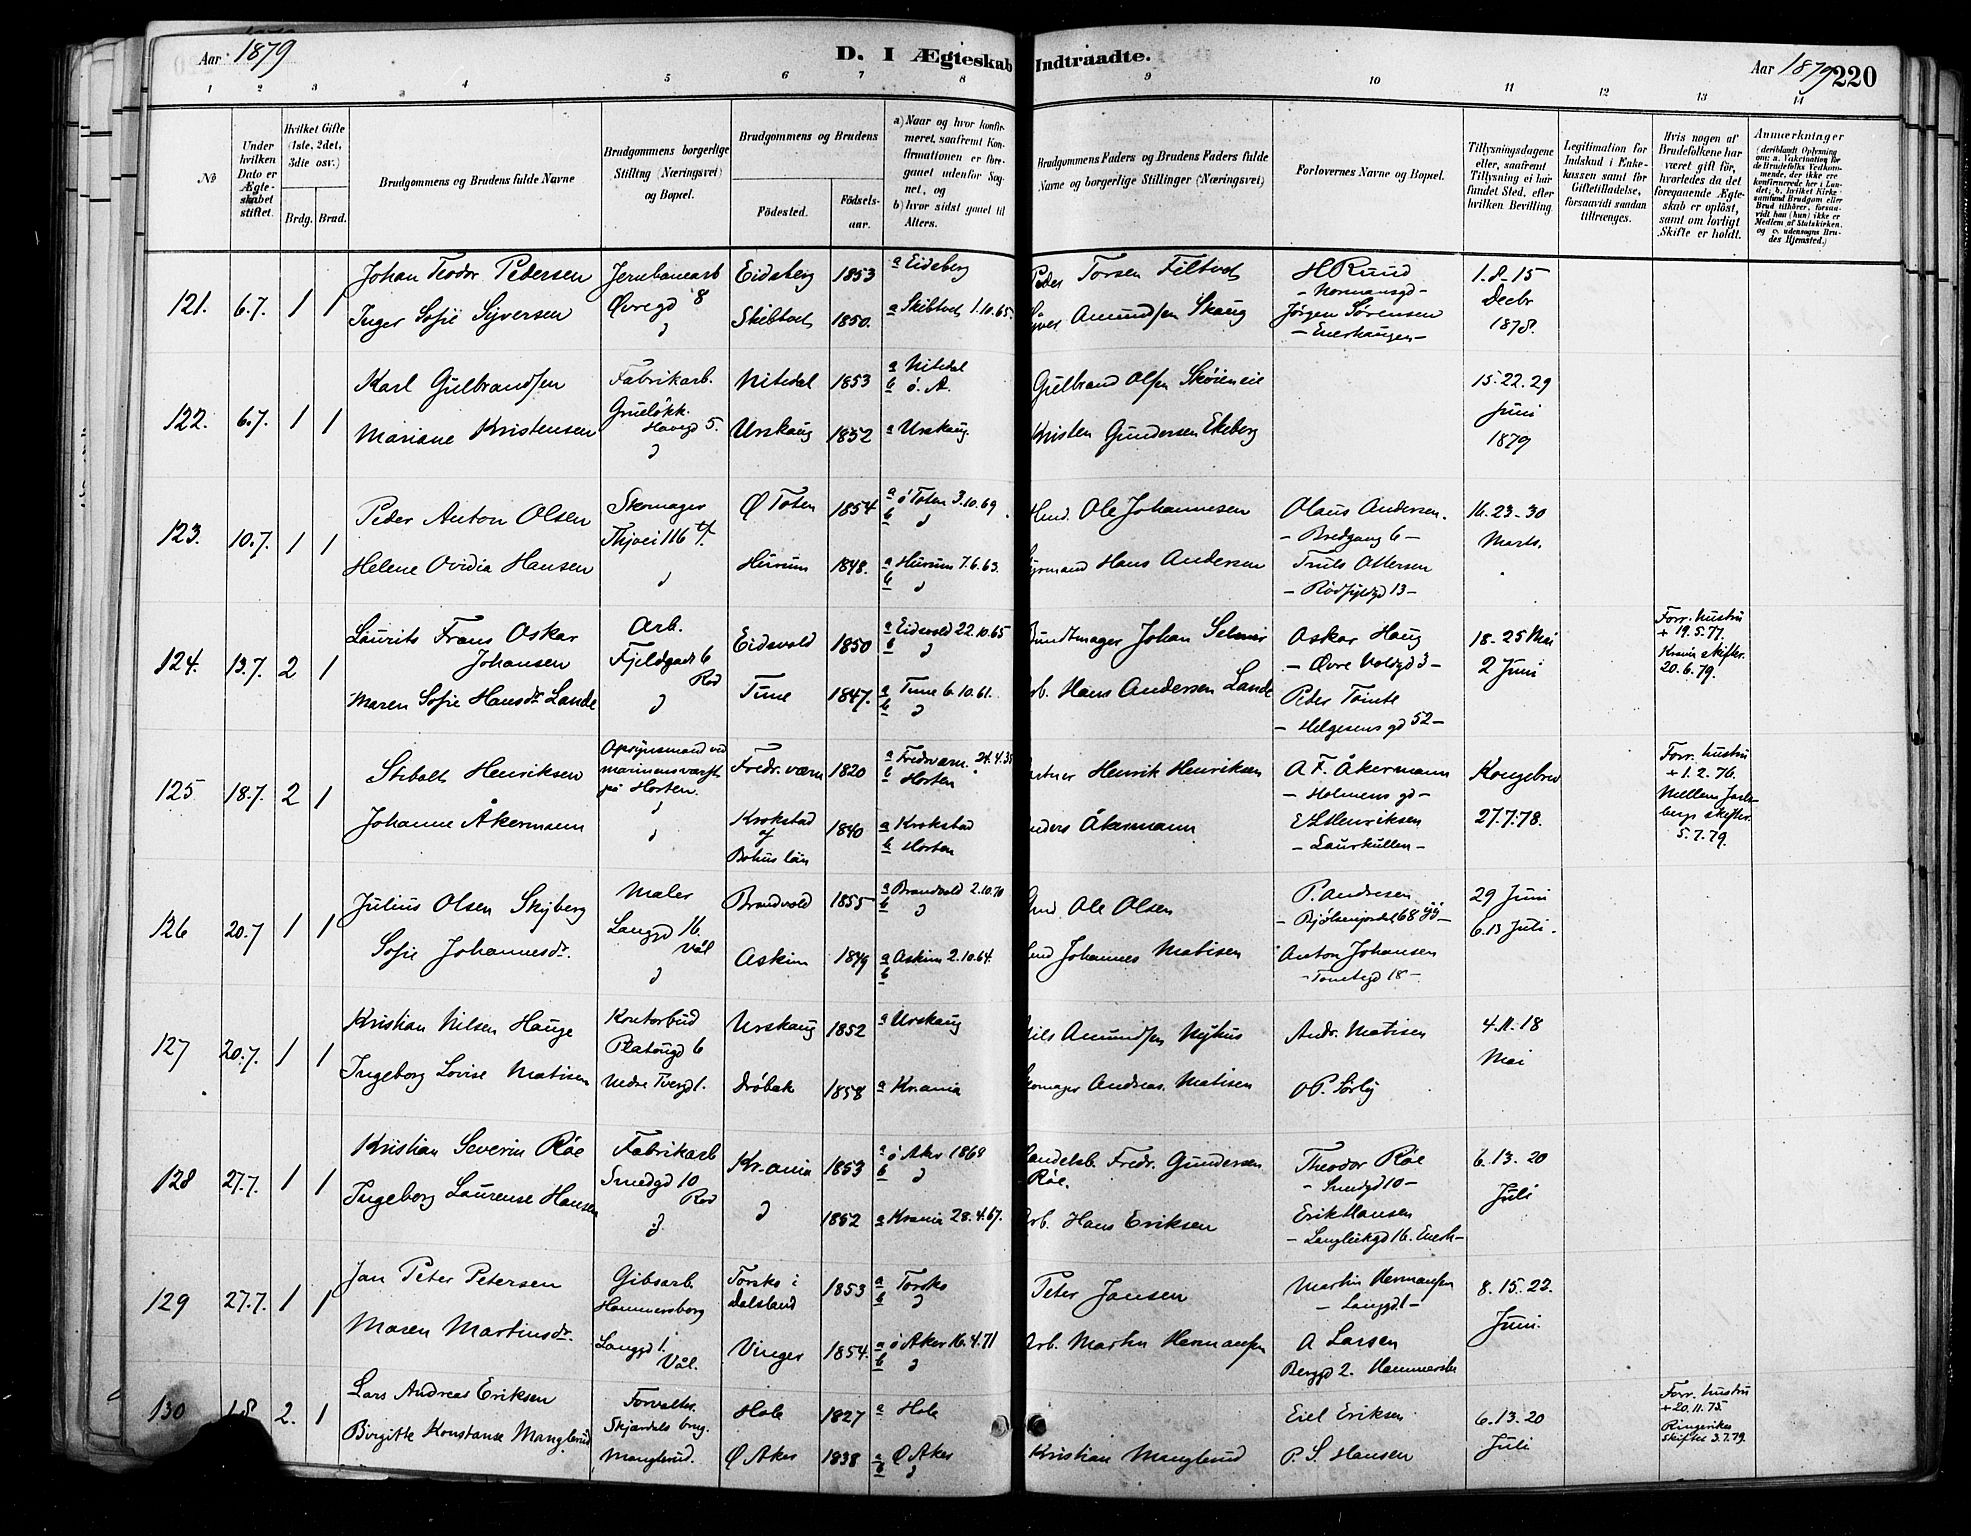 Aar 1879
D. I Ægteskab Indtraadte.
Aar 1879 220
1 2 3 4 5 6 7 8 9 10 11 12 13 14
No
Under hvilken Dato er Ægteskabet stiftet.
Hvilket Gifte (1ste, 2det, 3die osv.)
Brdg. Brud.
Brudgommens og Brudens fulde Navne
Brudgommens borgerlige Stilling (Næringsvei) og Bopæl.
Brudgommens og Brudens
Fødested.
Fødselsaar.
a) Naar og hvor konfirmeret, saafremt Konfirmationen er foregaaet udenfor Sognet, og
b) hvor sidst gaaet til Alters.
Brudgommens Faders og Brudens Faders fulde Navne og borgerlige Stillinger (Næringsvei)
Forlovernes Navne og Bopæl.
Tillysningsdagene eller, saafremt Tillysning ei har fundet Sted, efter hvilken Bevilling
Legitimation for Indskud i Enkekassen samt for Giftetilladelse, forsaavidt saadan tiltrænges.
Hvis nogen af Brudefolkene har været gift før, hvorledes da det foregaaende Ægteskab er opløst, samt om lovligt Skifte er holdt.
Anmærkninger
121. 6.7. 1 1 Johan Teodor Pedersen Jernbanearb Eidsberg 1853 a Eidsberg Peder Torsen Filtvet H Ruud 1.8.15
Øvregd 8 - Normansgd - Decbr
Inger Sofie Syversen Skibtvet 1850. a Skibtvet 1.10.65. Syver Amundsen Skaug Jørgen Sørensen 1878.
- Enerhaugen -
122. 6.7. 1 1 Karl Gulbrandsen Fabrikarb. Nitedal 1853 a Nitedal b ø. A. Gulbrand Olsen Skøieneie 15.22.29
Grueløkk. Juni
Mariane Kristensen Havegd 5. Urskaug 1852 a Urskaug. Kristen Gundersen Ekeberg 1879
123. 10.7. 1 1 Peder Anton Olsen Skomager Ø Toten 1854 a ø Toten 3.10.69 b Ole Johannesen Olaus Andersen. 16.23-30
Thjvei 116 - Bredgang 6 - Marts.
Helene Ovidia Hansen Hurum 1848. a Hurum 7.6.63. b Styrmand Hans Andersen Truls Ottersen
- Rødfyldgd 13 -
124. 13.7. 2 1 Laurits Frans Oskar Arb. Eidsvold 1850 a Eidsvold 22.10.65 b Bundtmager Johan Selmer Askar Haug 18-25 Mai Forr. hustru
Johansen Fjeldgad 6 - Øvre Voldgd 3 - 2 Juni + 19.5.77.
Rod Krania skifter.
Maren Sofie Hansdr Lande Tune 1847. a Tune 6.10.61. b Arb. Hans Andersen Lande Peter Tomte 20.6.79.
- Helgesens gd 52 -
125 18.7. 2 1 Stibolt Henriksen Opsynsmand ved Fredr.værn 1820 a Fredrværn. 24.4.35 Gartner Henrik Henriksen A F. Åkermann Kongebrev Forr. hustru
marinens værft b Horten - Holmens gd - + 1.2.76.
på Horten.
Johanne Åkermann Krokstad 1840 a Krokstad Anders Åkermann E Henriksen 27.7.78. Mellem Jarlsbergs skifter.
af Bohus län b Horten - Laurkullen - 5.7.79.
126 20.7 1 1 Julius Olsen Skyberg Maler Brandvold 1855 a Brandvold 2.10.70 b Ole Olsen P. Andresen 29 Juni
Langgd 16. - Bjølsenjordet 68 - 6.13 Juli.
Sofie Johannesdr. Vål Askim 1849 a Askim 2.10.64. b Johannes Matisen Anton Johansen
- Tomtegd 18 -
127 20.7. 1 1 Kristian Nilsen Hauge Kontorbud Urskaug 1852 a Urskaug Nils Amundsen Nyhus Andr. Matisen 4.11.18
Platougd 6 Mai
Ingeborg Lovise Matisen Nedre Tvergd 1. Drøbak 1858 a Krania Skomager Andreas Matisen O P. Sørby
128 27.7. 1 1 Kristian Severin Røe Fabrikarb Kr.ania 1853 a ø Aker 1868 b Handelsb. Fredr. Gundersen Theodor Røe 6.13.20
Smedgd 10 Røe. - Smedgd 10 - Juli
Rod
Ingeborg Laurense Hansen 1852 a Krania 28.4.67. Arb. Hans Eriksen Erik Hansen
- Langleikgd 16. Enerh -
129 27.7. 1 1 Jan Peter Petersen Gibsarb. Torsko i 1853 a Torsko b Peter Jansen Martin Hermansen 8.15.22.
Hammersborg Dalsland - Langgd 1 - Juni.
Maren Martinsdr. Langgd 1. Vinger 1854. a ø Aker 16.4.71 b Arb. Martin Hermansen A Larsen
Vål. Berggd 2. Hammersbr
130 1.8 2. 1 Lars Andreas Eriksen Forvalter. Hole 1827 a Hole Eiel Eriksen 6.13.20 Forr. hustru
Skjærdals brug. Juli + 20.11.75
Birgitte Konstanse Manglerud Manglerud. Ø Aker 1838 a Ø Aker b Kristian Manglerud P. S. Hansen Ringerikes
skifter 3.7.79.